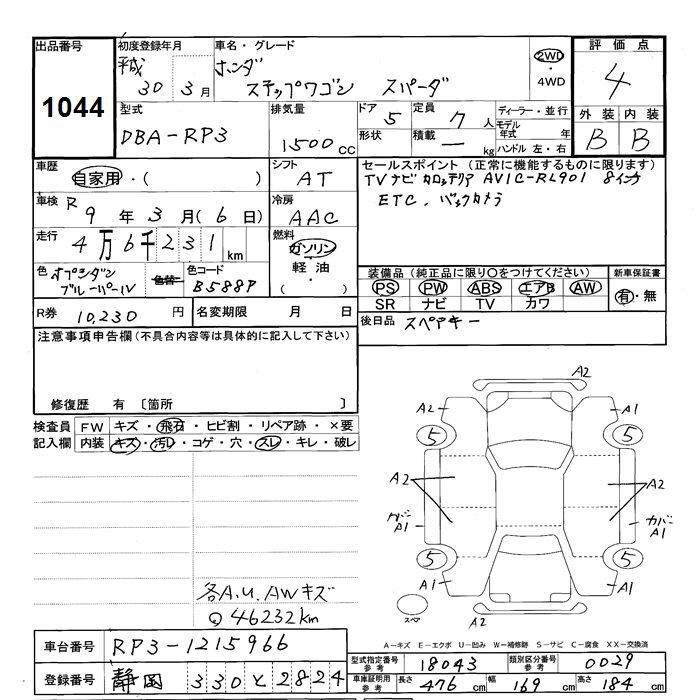 出品番号 初度登録年月 車名・グレード 評価点
1044
平成 30年 3月
ホンダ
ステップワゴン スパーダ
2WD
・
4WD
4
型式 DBA-RP3
排気量 1500cc
ドア 5
定員 7人
形状
積載 ー kg
ディーラー・並行
モデル年式 年
ハンドル 左・右
外装 内装
B B
車歴 自家用・( )
シフト AT
車検 R 9年3月(6日)
冷房 AAC
走行 4万6千231km
燃料 ガソリン
軽油・
( )
色 オブシダンブルーパール
色替
色コード B588P
セールスポイント (正常に機能するものに限ります)
TVナビ カロッテリア AVIC-RL901 8インチ
ETC. バックカメラ
装備品 (純正品に限り○をつけてください) 新車保証書
PS PW ABS エアB AW
SR ナビ TV カワ
有・無
R券 10,230円
名変期限 月 日
後日品 スペアキー
注意事項申告欄(不具合内容等は具体的に記入して下さい)
修復歴 有 〔箇所 〕
検査員 FW キズ・飛石・ヒビ割・リペア跡・×要
記入欄 内装 キズ・汚レ・コゲ・穴・スレ・キレ・破レ
各A.U.AWキズ
Q 46232km
A2
A2 A1
5 5
A2 A2
カバー A1
カバー A1
5 5
A1 A1
スペア
A2
A-キズ E-エクボ U-凹み W-補修跡 S-サビ C-腐食 XX-交換済
車台番号 RP3-1215966
登録番号 静岡 330 と 2824
型式指定番号 参考 18043
類別区分番号 参考 0029
車庫証明用 参考 長さ 476cm 幅 169cm 高さ 184cm